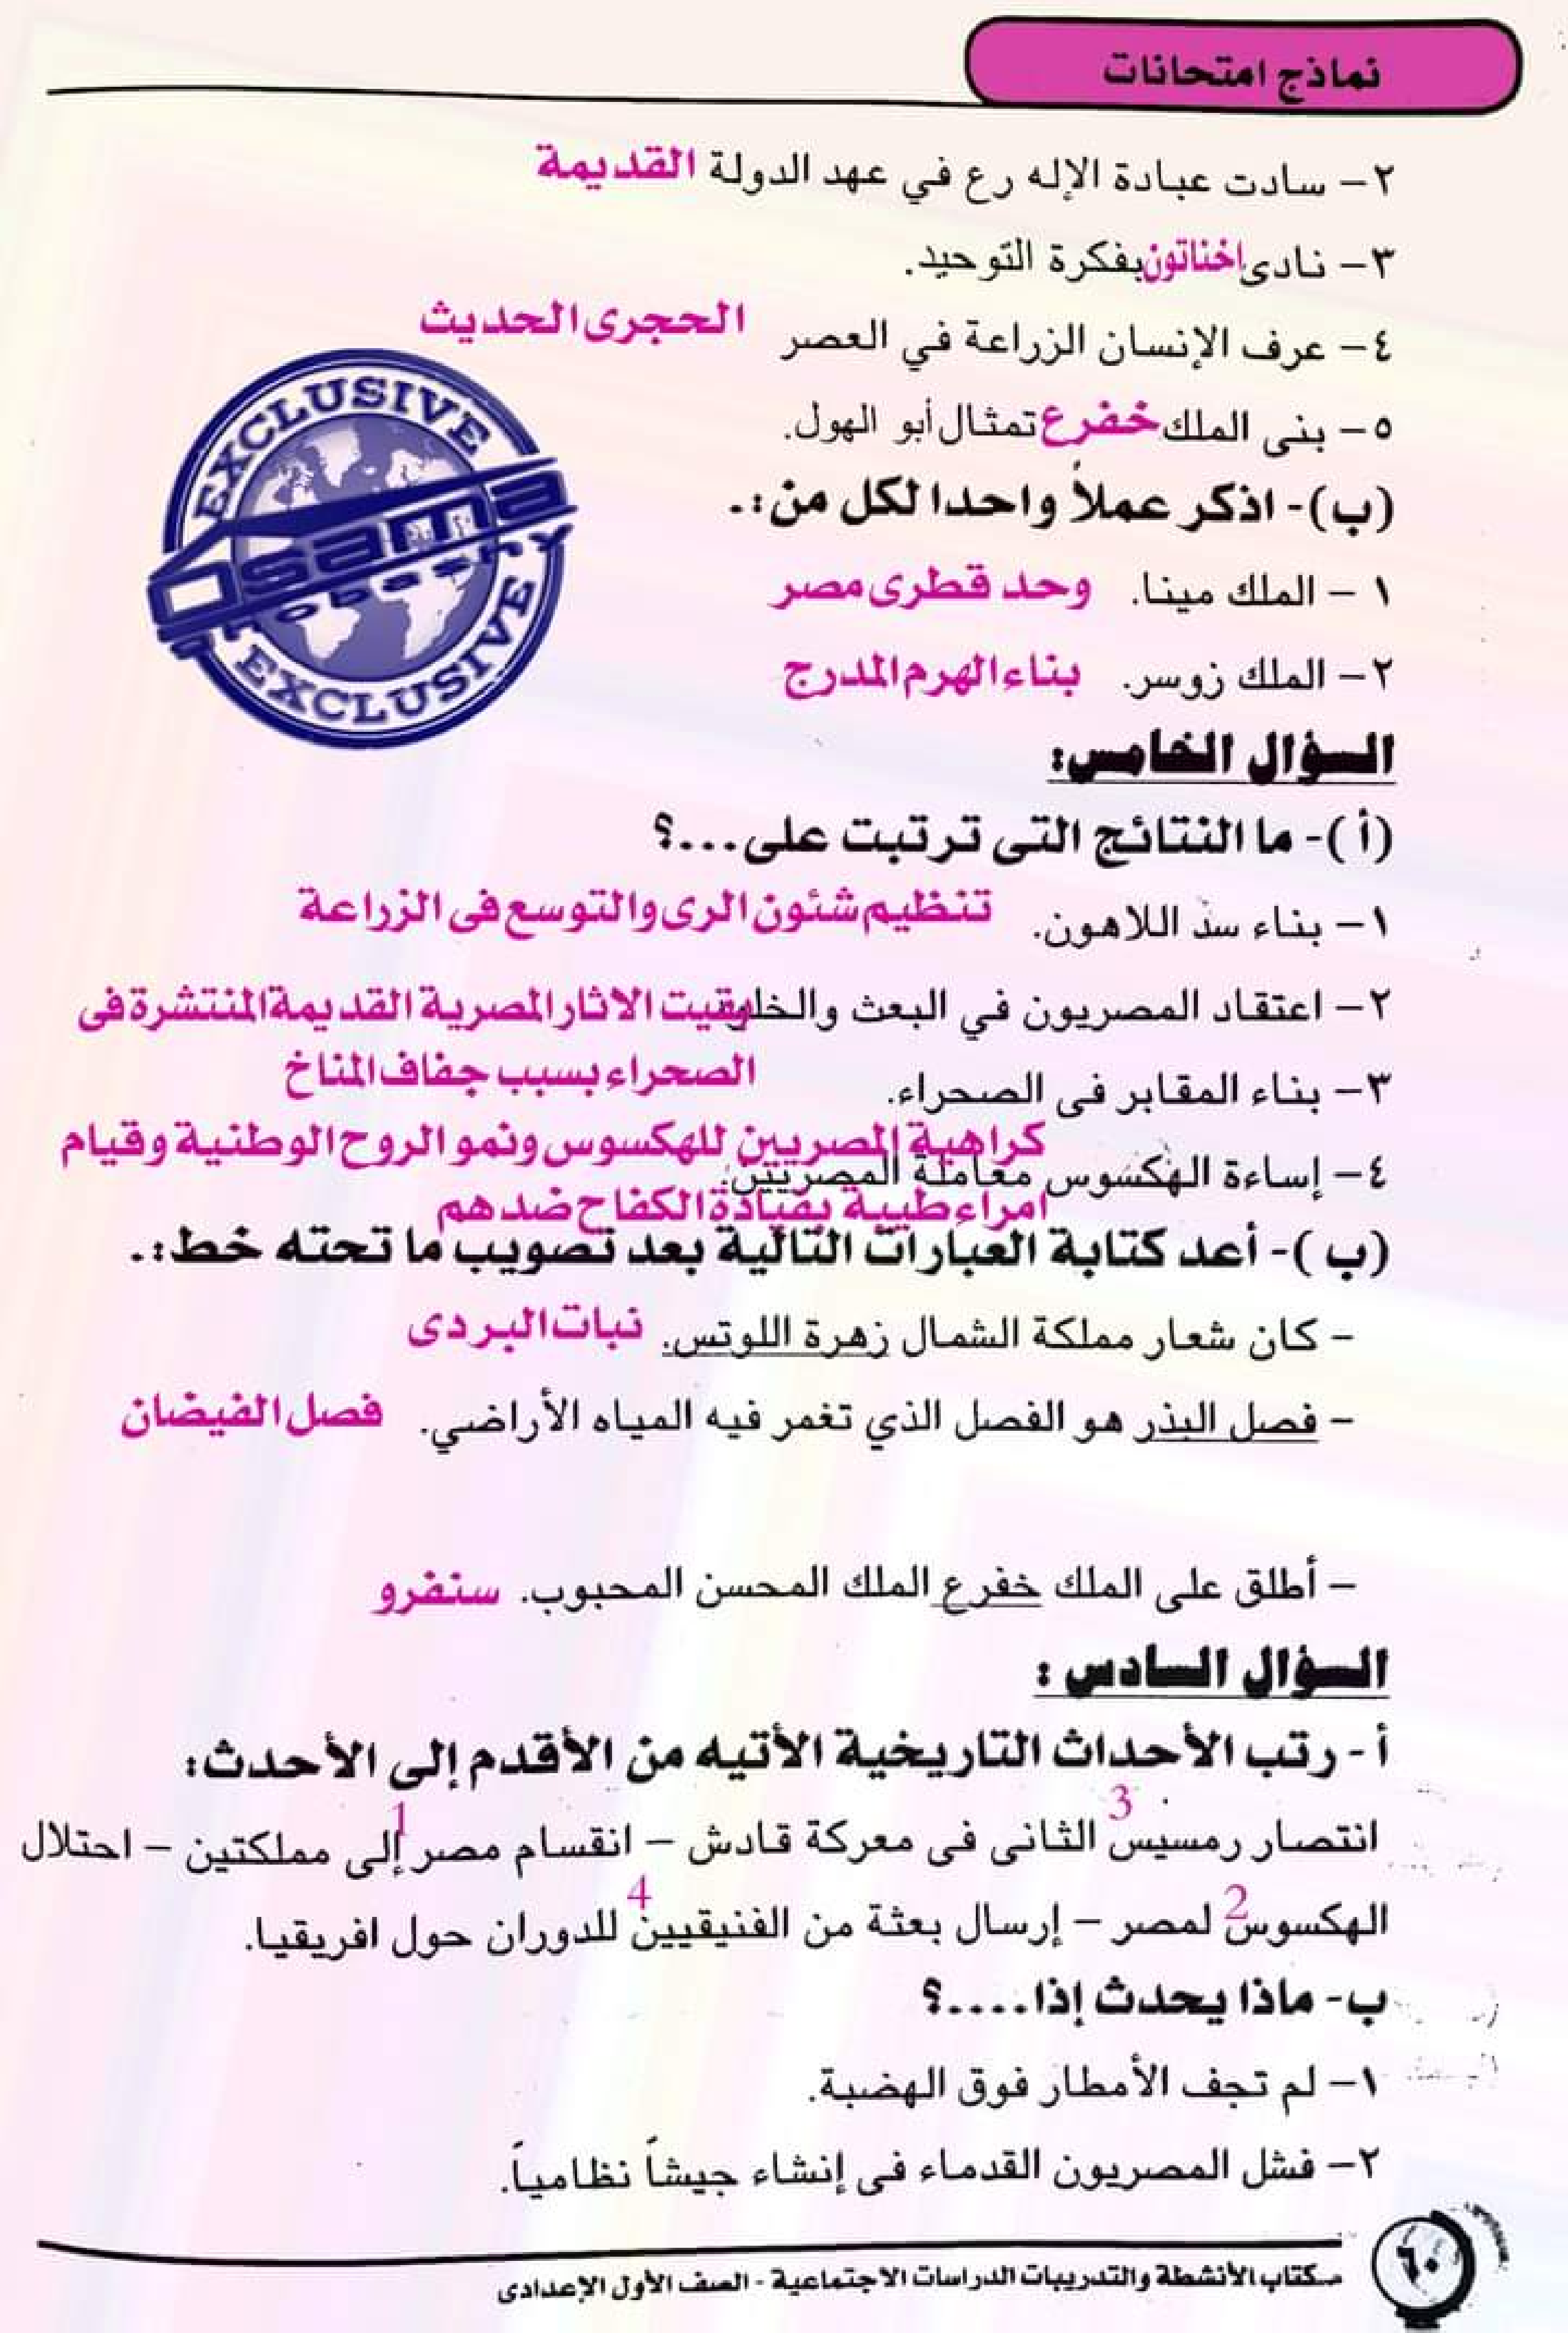 نماذج امتحانات
٢- سادت عبادة الإله رع في عهد الدولة القديمة
٣- نادى اخناتون بفكرة التوحيد.
٤- عرف الإنسان الزراعة في العصر الحجرى الحديث
٥- بنى الملك خفرع تمثال أبو الهول.
(ب)- اذكر عملاً واحدا لكل من:.
١- الملك مينا. وحد قطرى مصر
٢- الملك زوسر. بناء الهرم المدرج
EXCLUSIVE
Osama
EXCLUSIVE
السؤال الخامس:
(أ)- ما النتائج التى ترتبت على...؟
١- بناء سد اللاهون. تنظيم شئون الرى والتوسع فى الزراعة
٢- اعتقاد المصريون في البعث والخلود بقيت الاثار المصرية القديمة المنتشرة فى
الصحراء بسبب جفاف المناخ
٣- بناء المقابر فى الصحراء.
كراهية المصريين للهكسوس ونمو الروح الوطنية وقيام
٤- إساءة الهكسوس معاملة المصريين.
امراء طيبة بقيادة الكفاح ضدهم
(ب)- أعد كتابة العبارات التالية بعد تصويب ما تحته خط:.
- كان شعار مملكة الشمال زهرة اللوتس. نبات البردى
- فصل البذر هو الفصل الذي تغمر فيه المياه الأراضي. فصل الفيضان
- أطلق على الملك خفرع الملك المحسن المحبوب. سنفرو
السؤال السادس :
أ- رتب الأحداث التاريخية الأتيه من الأقدم إلى الأحدث:
3 1
انتصار رمسيس الثانى فى معركة قادش - انقسام مصر إلى مملكتين - احتلال
2 4
الهكسوس لمصر - إرسال بعثة من الفنيقيين للدوران حول افريقيا.
ب- ماذا يحدث إذا....؟
١- لم تجف الأمطار فوق الهضبة.
٢- فشل المصريون القدماء فى إنشاء جيشاً نظامياً.
كتاب الأنشطة والتدريبات الدراسات الاجتماعية - الصف الأول الإعدادى
٦٠